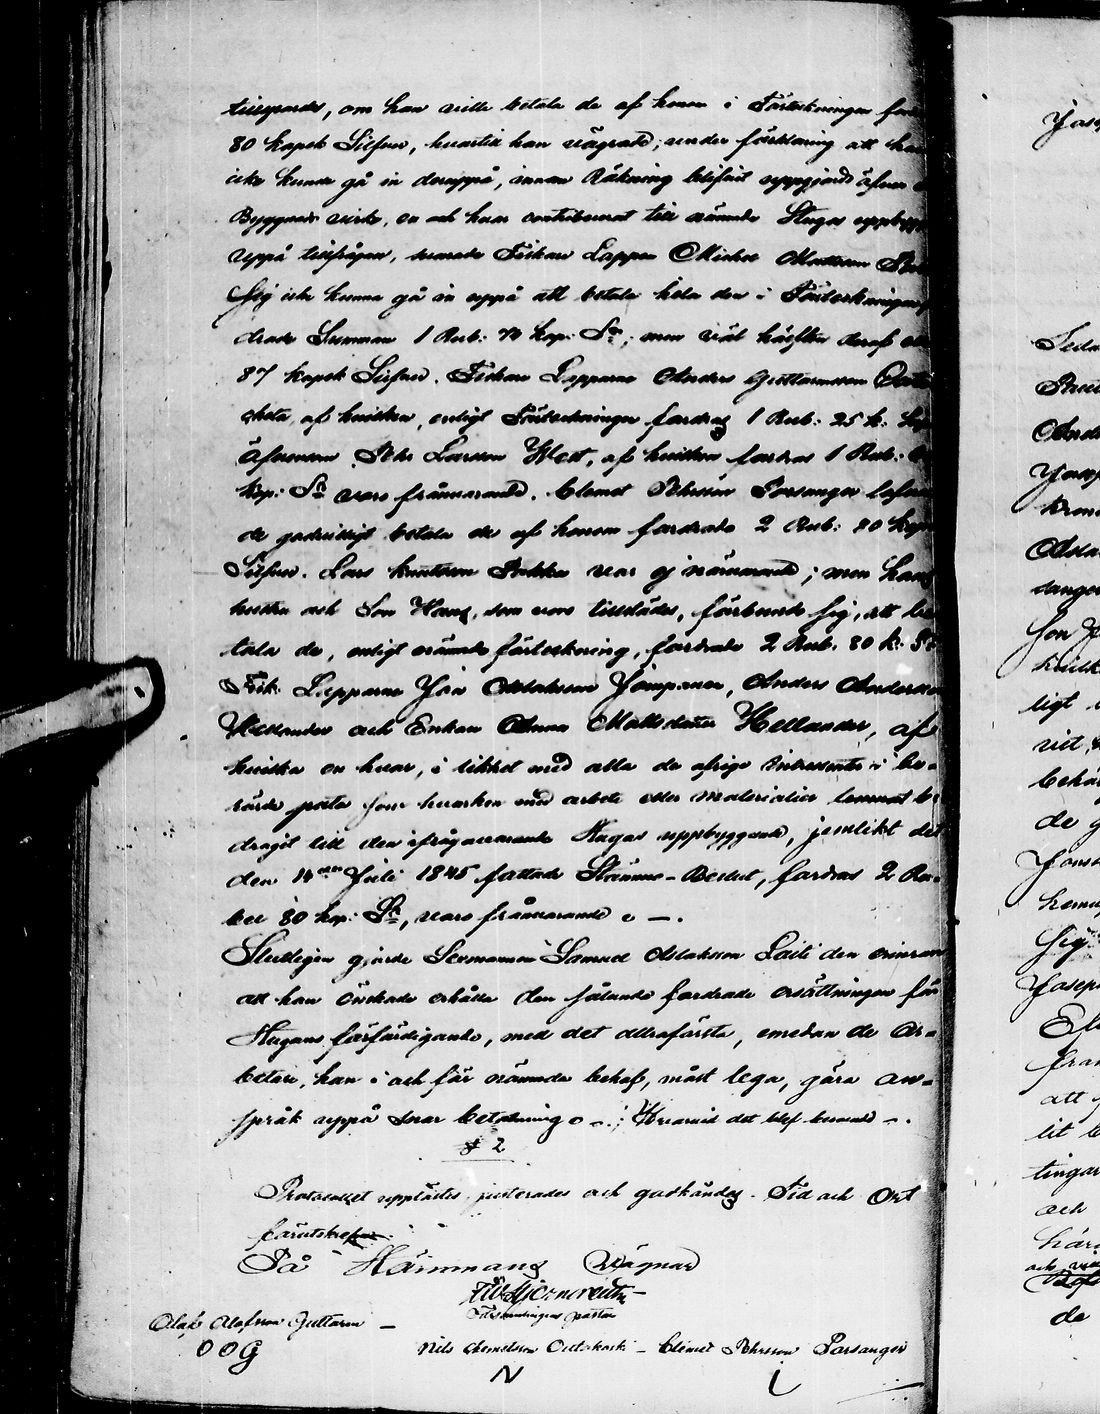 tillspordes, om han ville betala de af honom i Förteckningen
80 Kopek Silfver, hvartill han vägrade; under förklaring att han
icke kunde gå in deruppå, innan Räkning blifvit uppgjord öfver
Byggnads virke, en och hvar contribuerat till nämnde Stugas
uppå tillfrågan, svarade Fiskare Lappen Michel Mattsson
sig icke kunna gå in uppå att betala hela den i Förteckningen
drade Summan 1 Rub: 74 kop: Sr; men väl hälften deraf
87 kopek Silfver. Fiskare Lapparne Anders Guttormsson
af hvilken, enligt Förteckningen fordras 1 Rub: 25 k:
äfvensom Pehr Larsson West, af hvilken fordras 1 Rub:
kop: Sr voro frånvarande. Clemet Pehrsson Porsanger
de godvilligt betala de af honom fordrade 2 Rub: 80 kop
Silfver. Lars Knutsson var ej närvarande; men hans
hustru och Son Hans, som voro tillstädes, förbundo sig, att be
tala de, enligt nämnde förteckning, fordrade 2 Rub. 80 k. Sr
Fisk. Lapparne Jon Aslaksson Jomppanen, Anders Andersson
Hellander och Enkan Anna Mattsdotter Hellander, af
hvilka en hvar, i likhet med alla de öfrige Intressenter i be-
rörde pörte som hvarken med arbete eller materialier lemnat bi
dragit till den ifrågavarande Stugas uppbyggande, jemlikt det
den 14de Juli 1845 fattade Stämmo-Beslut, fordras 2 Ru-
bel 80 kop: Sr, voro frånvarande —.
Slutligen gjorde Sexmannen Samuel Aslaksson Laiti den erinran
att han önskade erhålla den sålunda fordrade ersättningen för
Stugans förfärdigande, med det allraförsta, emedan de Ar-
betare, han i och för nämnda behof, måst lega, göra an-
språk uppå snar betalning —; Hvarvid det blef beroende —.
§ 2
Protocollet upplästes, justerades och godkändes. Tid och Ort
förutskrefne.
På Stämmans Vägnar
Församlingens pastor
Olof Olofsson Guttorm —
O O G
Nils Clemetsson — Clemet Pehrsson Porsanger
N